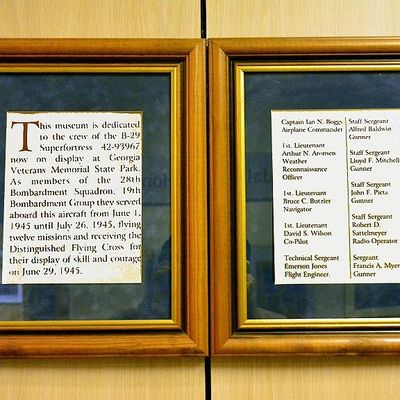 This museum is dedicated
to the crew of the B-29
Superfortress 42-93967
now on display at Georgia
Veterans Memorial State Park.
As members of the 28th
Bombardment Squadron, 19th
Bombardment Group they served
aboard this aircraft from June 1,
1945 until July 26, 1945, flying
twelve missions and receiving the
Distinguished Flying Cross for
their display of skill and courage
on June 29, 1945.
Captain Ian N. Boggs
Airplane Commander
1st. Lieutenant
Arthur N. Aronsen
Weather
Reconnaissance
Officer
1st. Lieutenant
Bruce C. Butzler
Navigator
1st. Lieutenant
David S. Wilson
Co-Pilot
Technical Sergeant
Emerson Jones
Flight Engineer.
Staff Sergeant
Alfred Baldwin
Gunner
Staff Sergeant
Lloyd F. Mitchell
Gunner
Staff Sergeant
John F. Pietz
Gunner
Staff Sergeant
Robert D.
Sattelmeyer
Radio Operator
Sergeant
Francis A. Myer
Gunner